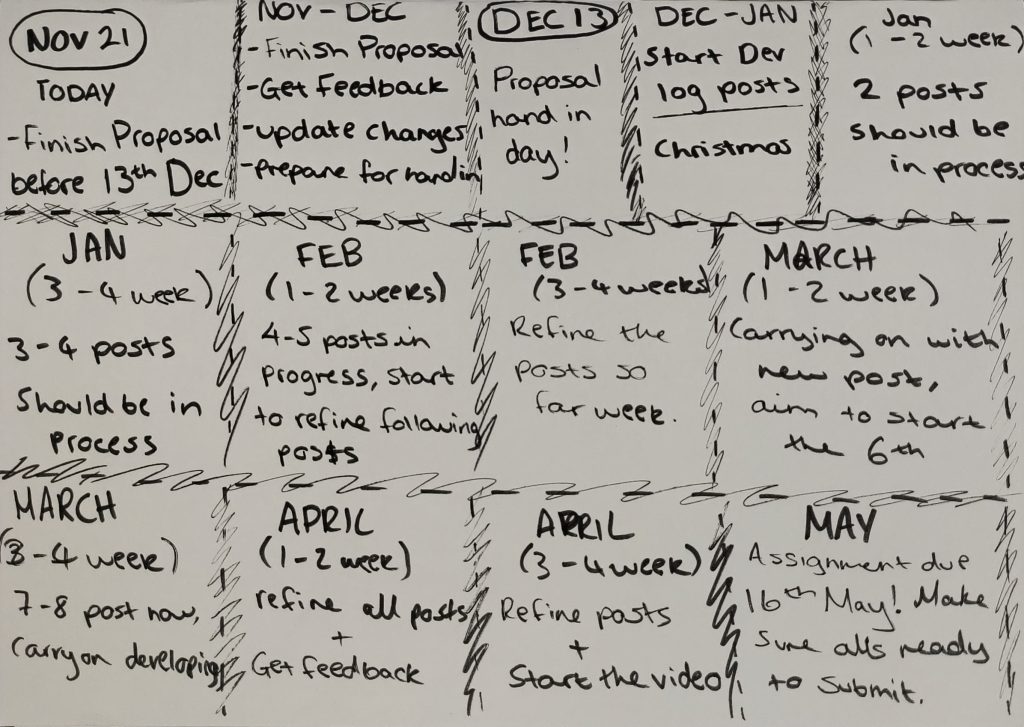 NOV 21
TODAY
-Finish Proposal
before 13th Dec
NOV - DEC
-Finish Proposal
-Get Feedback
-update changes
-prepare for handin
DEC 13
Proposal
hand in
day!
DEC-JAN
Start Dev
log posts
Christmas
Jan
(1-2 week)
2 posts
should be
in process
JAN
(3-4 week)
3-4 posts
Should be in
process
FEB
(1-2 weeks)
4-5 posts in
progress, start
to refine following
posts
FEB
(3-4 weeks)
Refine the
posts so
far week.
MARCH
(1-2 week)
Carrying on with
new post,
aim to start
the 6th
MARCH
(3-4 week)
7-8 post now,
Carry on developing
APRIL
(1-2 week)
refine all posts
+
Get feedback
APRIL
(3-4 week)
Refine posts
+
Start the video
MAY
Assignment due
16th May! Make
Sure alls ready
to submit.